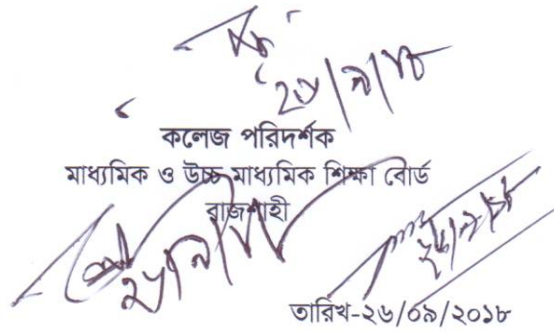 ২৬/৯/১৮
কলেজ পরিদর্শক
মাধ্যমিক ও উচ্চ মাধ্যমিক শিক্ষা বোর্ড
রাজশাহী
২৬/৯/১৮
তারিখ-২৬/০৯/২০১৮